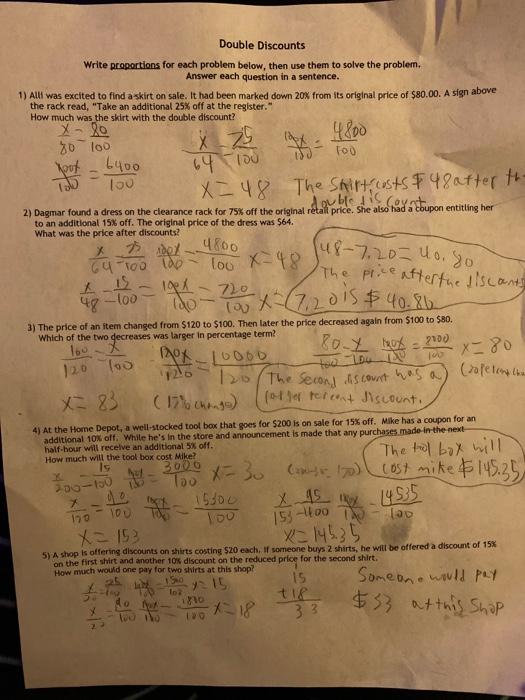 Double Discounts
Write proportions for each problem below, then use them to solve the problem.
Answer each question in a sentence.
1) Alli was excited to find a skirt on sale. It had been marked down 20% from its original price of $80.00. A sign above
the rack read, "Take an additional 25% off at the register."
How much was the skirt with the double discount?
x/80 = 80/100
x/64 = 75/100
100x/100 = 4800/100
100x/100 = 6400/100
x = 48
The skirt costs $48 after the
double discount.
2) Dagmar found a dress on the clearance rack for 75% off the original retail price. She also had a coupon entitling her
to an additional 15% off. The original price of the dress was $64.
What was the price after discounts?
x/64 = 75/100
100x/100 = 4800/100
x = 48
48 - 7.20 = 40.80
The price after the discounts
x/48 = 15/100 = 100x/100 = 720/100
x = 7.20
is $40.80
3) The price of an item changed from $120 to $100. Then later the price decreased again from $100 to $80.
Which of the two decreases was larger in percentage term?
100/120 = x/100
120x/120 = 10000/120
80/100 = x/100
x = 80
The second discount has a
larger percent discount.
x = 83 (17% change)
4) At the Home Depot, a well-stocked tool box that goes for $200 is on sale for 15% off. Mike has a coupon for an
additional 10% off. While he's in the store and announcement is made that any purchases made in the next
half-hour will receive an additional 5% off.
How much will the tool box cost Mike?
The tool box will
cost mike $145.35
x/200 = 15/100
3000/100
x = 30
15300/100
x/153 = 95/100
14535/100
x = 153
x = 145.35
5) A shop is offering discounts on shirts costing $20 each. If someone buys 2 shirts, he will be offered a discount of 15%
on the first shirt and another 10% discount on the reduced price for the second shirt.
How much would one pay for two shirts at this shop?
15
+18
33
x = 18
Someone would pay
$33 at this shop